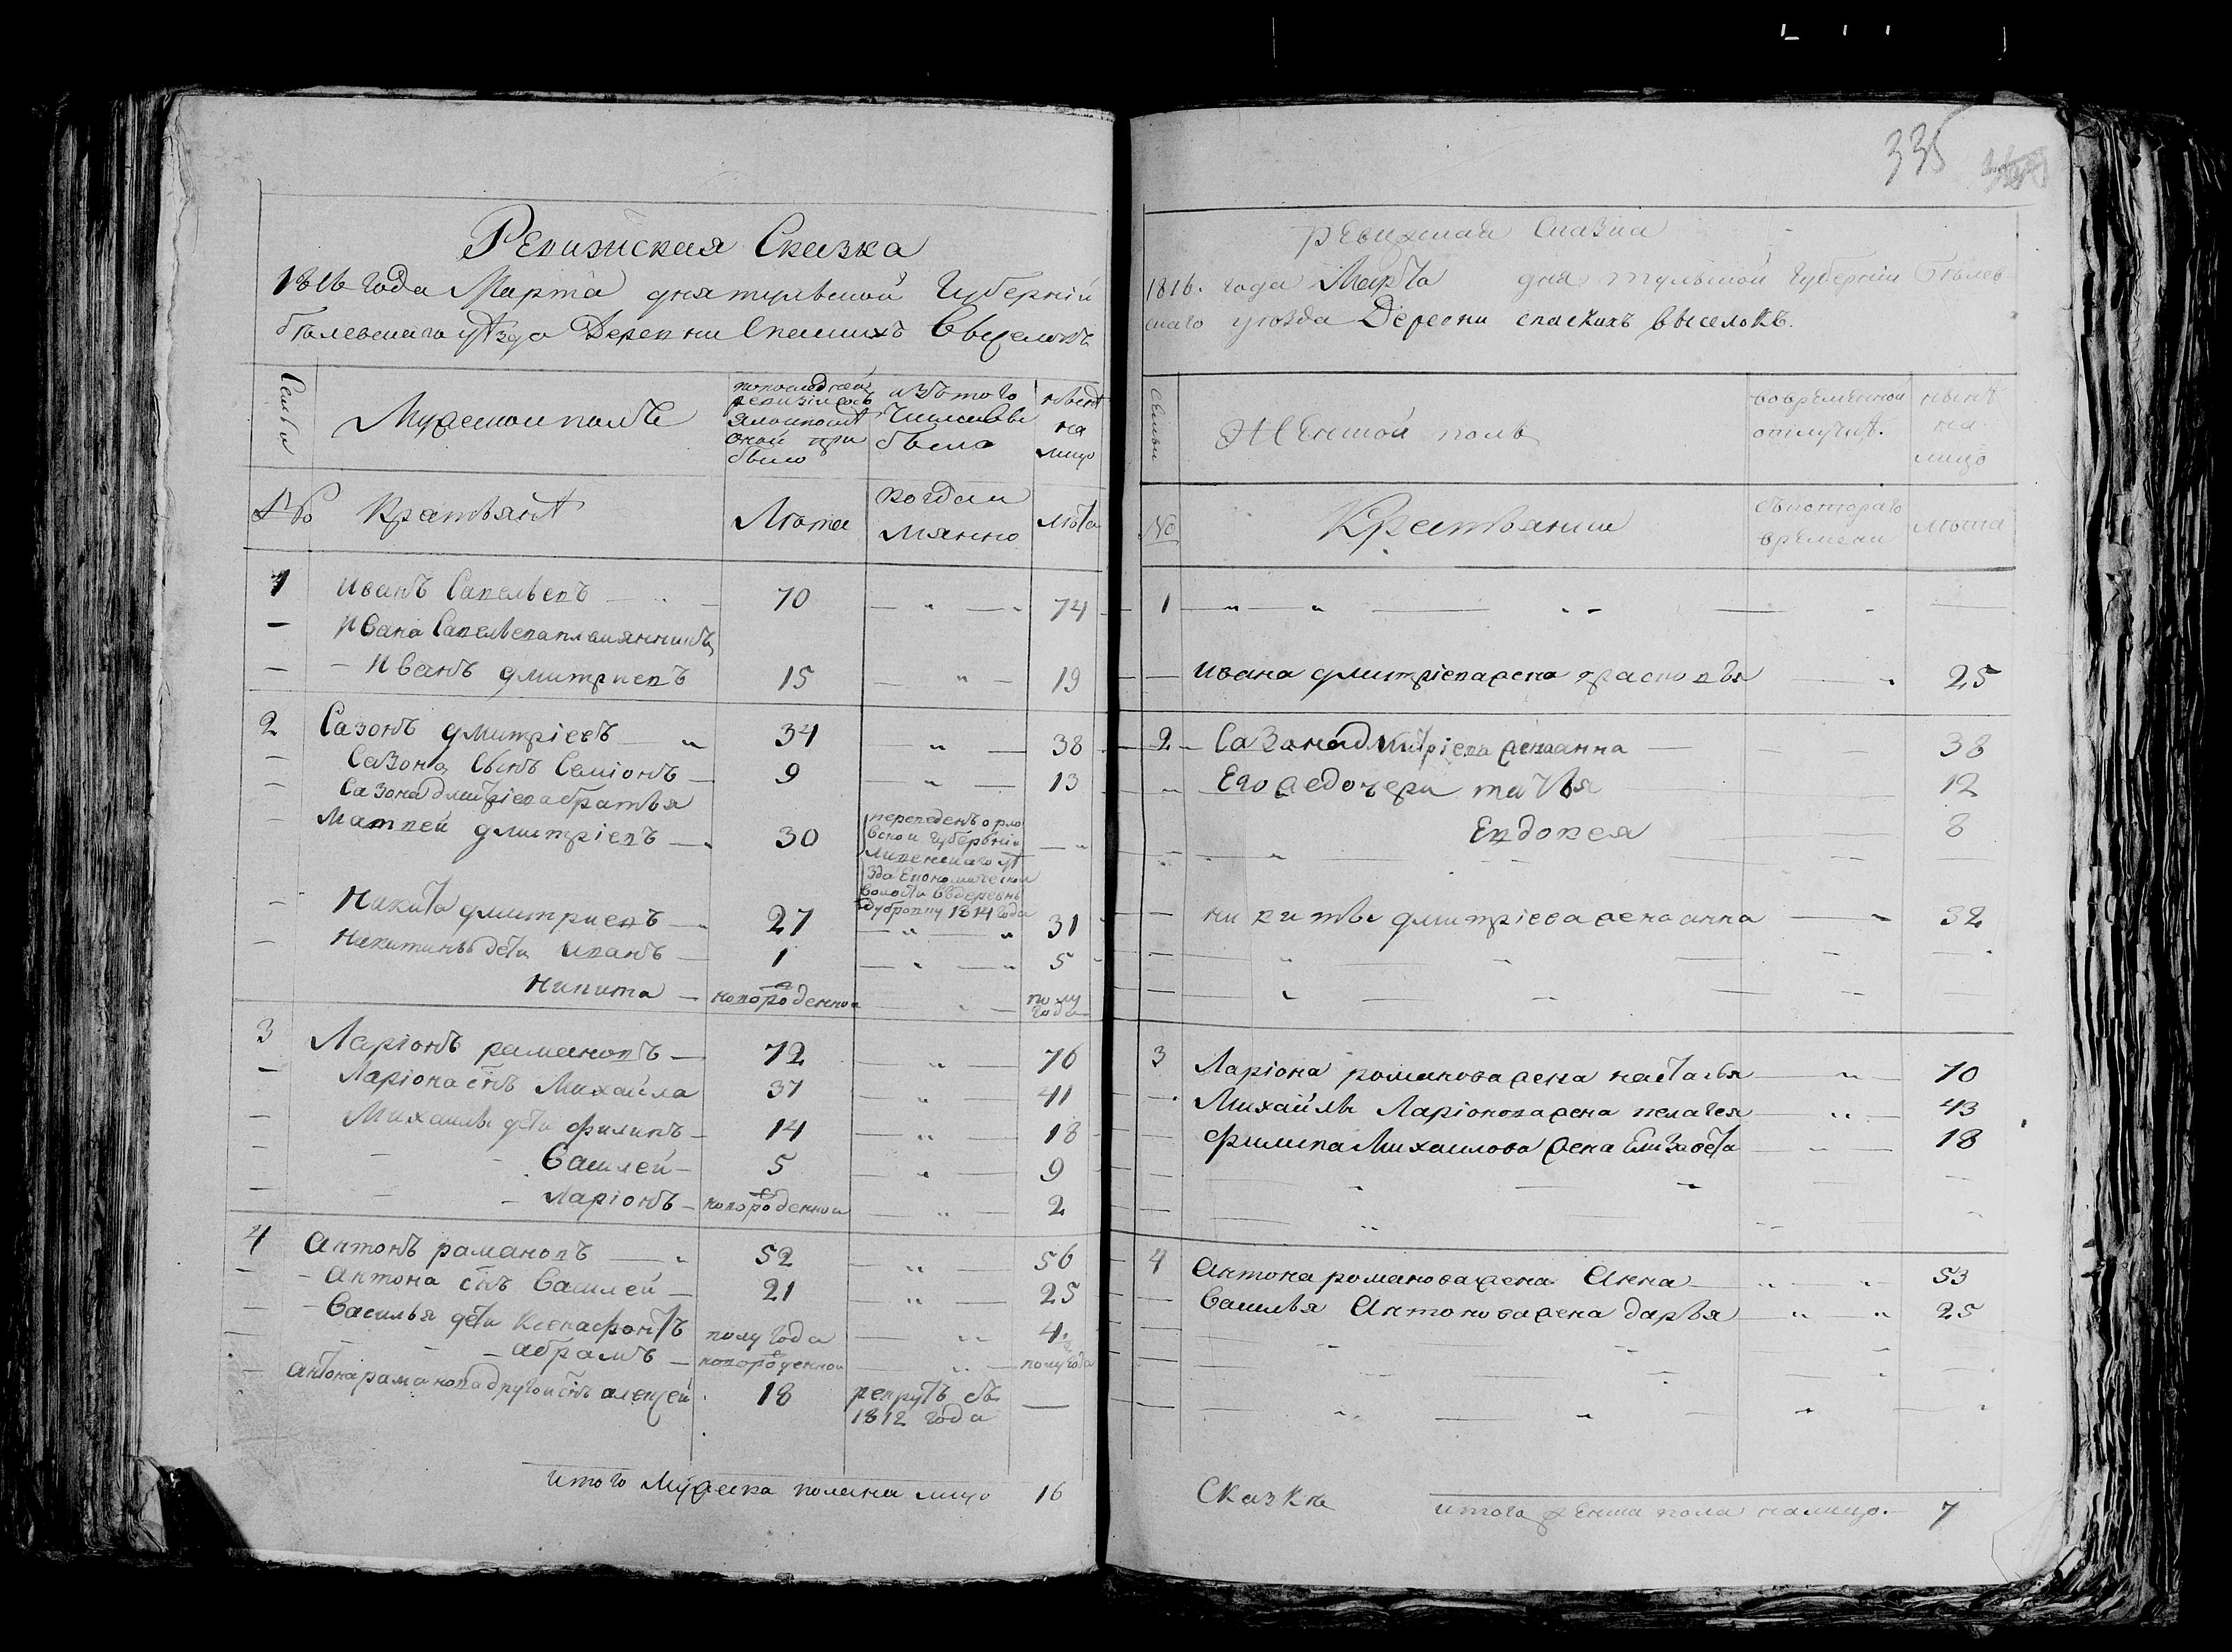 335
Ревизская Сказка
1816 года Марта дня тульской Губерній
бѣлевскаго уѣзда Деревни Спаскихъ Выселокъ
Семьи
Мужескои полъ
по последней ревизіи состояло и после оной прибыло
изъ того числа выбыло
ныне на лицо
№
Крестьяне
Лѣта
когда имянно
лѣта
1 Иванъ Савельевъ 70 74
Ивана Савельева племянникъ
Иванъ дмитриевъ 15 19
2 Сазонъ дмитріевъ 34 38
Сазона сынъ Самсонъ 9 13
Сазона дмитріева братья
Матвей дмитріевъ 30 переведенъ орловской губерніи
ливенскаго уѣзда Економической волости в деревню дубровку 1814 года
Никита дмитриевъ 27 31
Никитины дети иванъ 1 5
Никита новорожденной полугода
3 Ларіонъ рамановъ 72 76
Ларіона снъ Михайла 37 41
Михайлы дети филипъ 14 18
Василей 5 9
Ларіонъ новорожденной 2
4 Антонъ рамановъ 52 56
Антона снъ Василей 21 25
Василья дети Ксенафонтъ полугода 4
абрамъ новорожденной полугода
Антона раманова другой снъ алексей 18 рекрутъ съ
1812 года
итого Мужеска пола на лицо 16
ревижская сказка
1816. года Марта дня тульской губерніи бѣлев
скаго уѣзда Деревни спаскихъ выселокъ.
Семьи
Женской полъ
во временной отлучкѣ.
нынѣ на лицо
№
Крестьянки
съ котораго времени
лѣта
1
Ивана дмитріева жена прасковья 25
2 Сазона дмитріева жена анна 38
Его же дочери 12
Евдокея 8
никиты дмитріева жена анна 32
3 Ларіона романова жена настасья 70
Михайлы Ларіонова жена пелагея 43
филипа Михаилова жена Елизавета 18
4 Антона романова жена Анна 53
Василья Антонова жена дарья 25
Сказка
итого женска пола налицо. 7